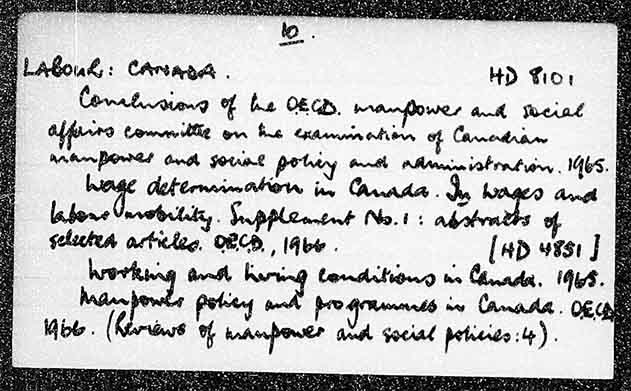 10.
LABOUR: CANADA. HD 8101
Conclusions of the O.E.C.D. manpower and social
affairs committee on the examination of Canadian
manpower and social policy and administration. 1965.
Wage determination in Canada. In Wages and
labour mobility. Supplement No. 1: abstracts of
selected articles. O.E.C.D., 1966. [HD 4851]
Working and living conditions in Canada. 1965.
Manpower policy and programmes in Canada. O.E.C.D.
1966. (Reviews of manpower and social policies: 4).